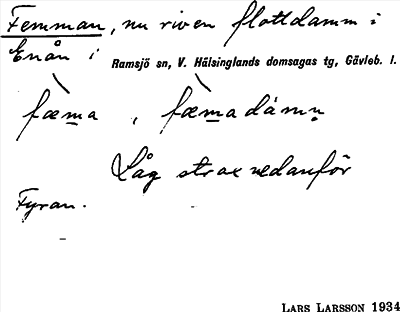 Femman, nu riven flottdamm i
Enån i Ramsjö sn, V. Hälsinglands domsagas tg, Gävleb. l.
fæ̀ma, fæ̀madámṇ
Låg strax nedanför
Fyran.
LARS LARSSON 1934